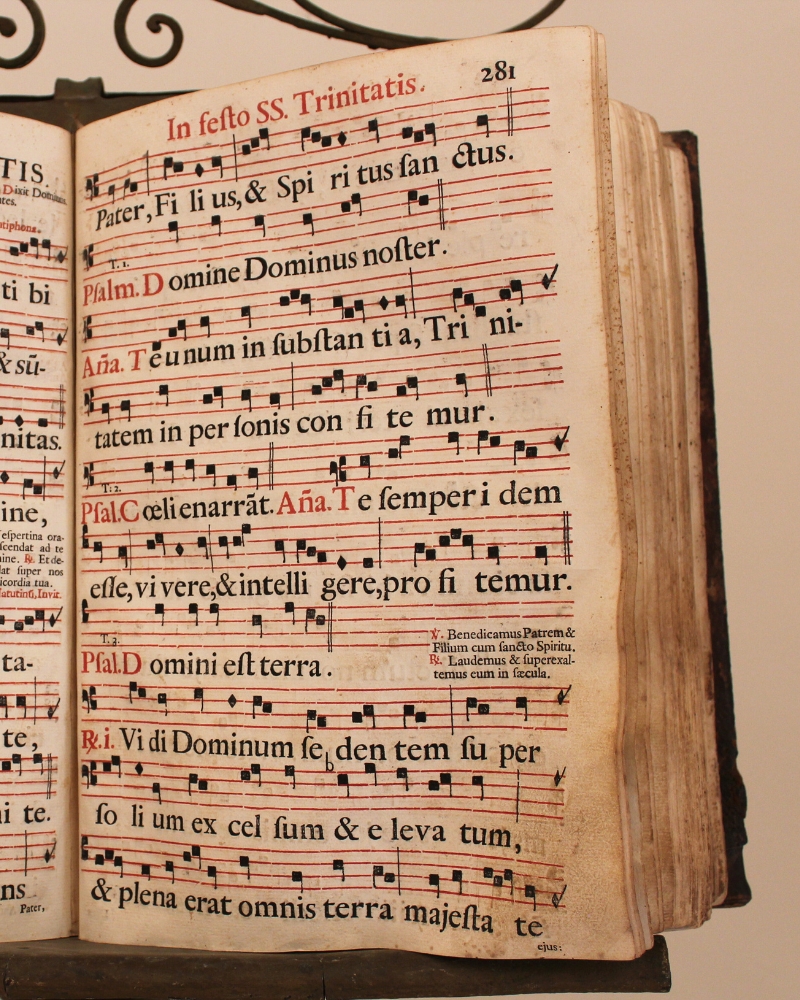 TIS.
Dixit Dominus
tiphona.
ti bi
& sũ-
nitas.
ine,
espertina ora-
scendat ad te
nine. ℟. Et de-
dat super nos
icordia tua.
Matutinũ, Invit.
ta-
te,
ni te.
ns
Pater,
In feſto SS. Trinitatis. 281
Pater, Fi li us, & Spi ri tus ſan ctus.
T. 1.
Pſalm. D omine Dominus noſter.
Aña. T e unum in ſubſtan ti a, Tri ni-
tatem in per ſonis con fi te mur.
T. 2.
Pſal. C œli enarrãt. Aña. T e ſemper i dem
eſſe, vi vere, & intelli gere, pro fi temur.
T. 3.
Pſal. D omini eſt terra.
℣. Benedicamus Patrem &
Filium cum ſancto Spiritu.
℟. Laudemus & ſuperexal-
temus eum in ſæcula.
℟. i. Vi di Dominum ſe den tem ſu per
ſo li um ex cel ſum & e leva tum,
& plena erat omnis terra majeſta te
ejus: